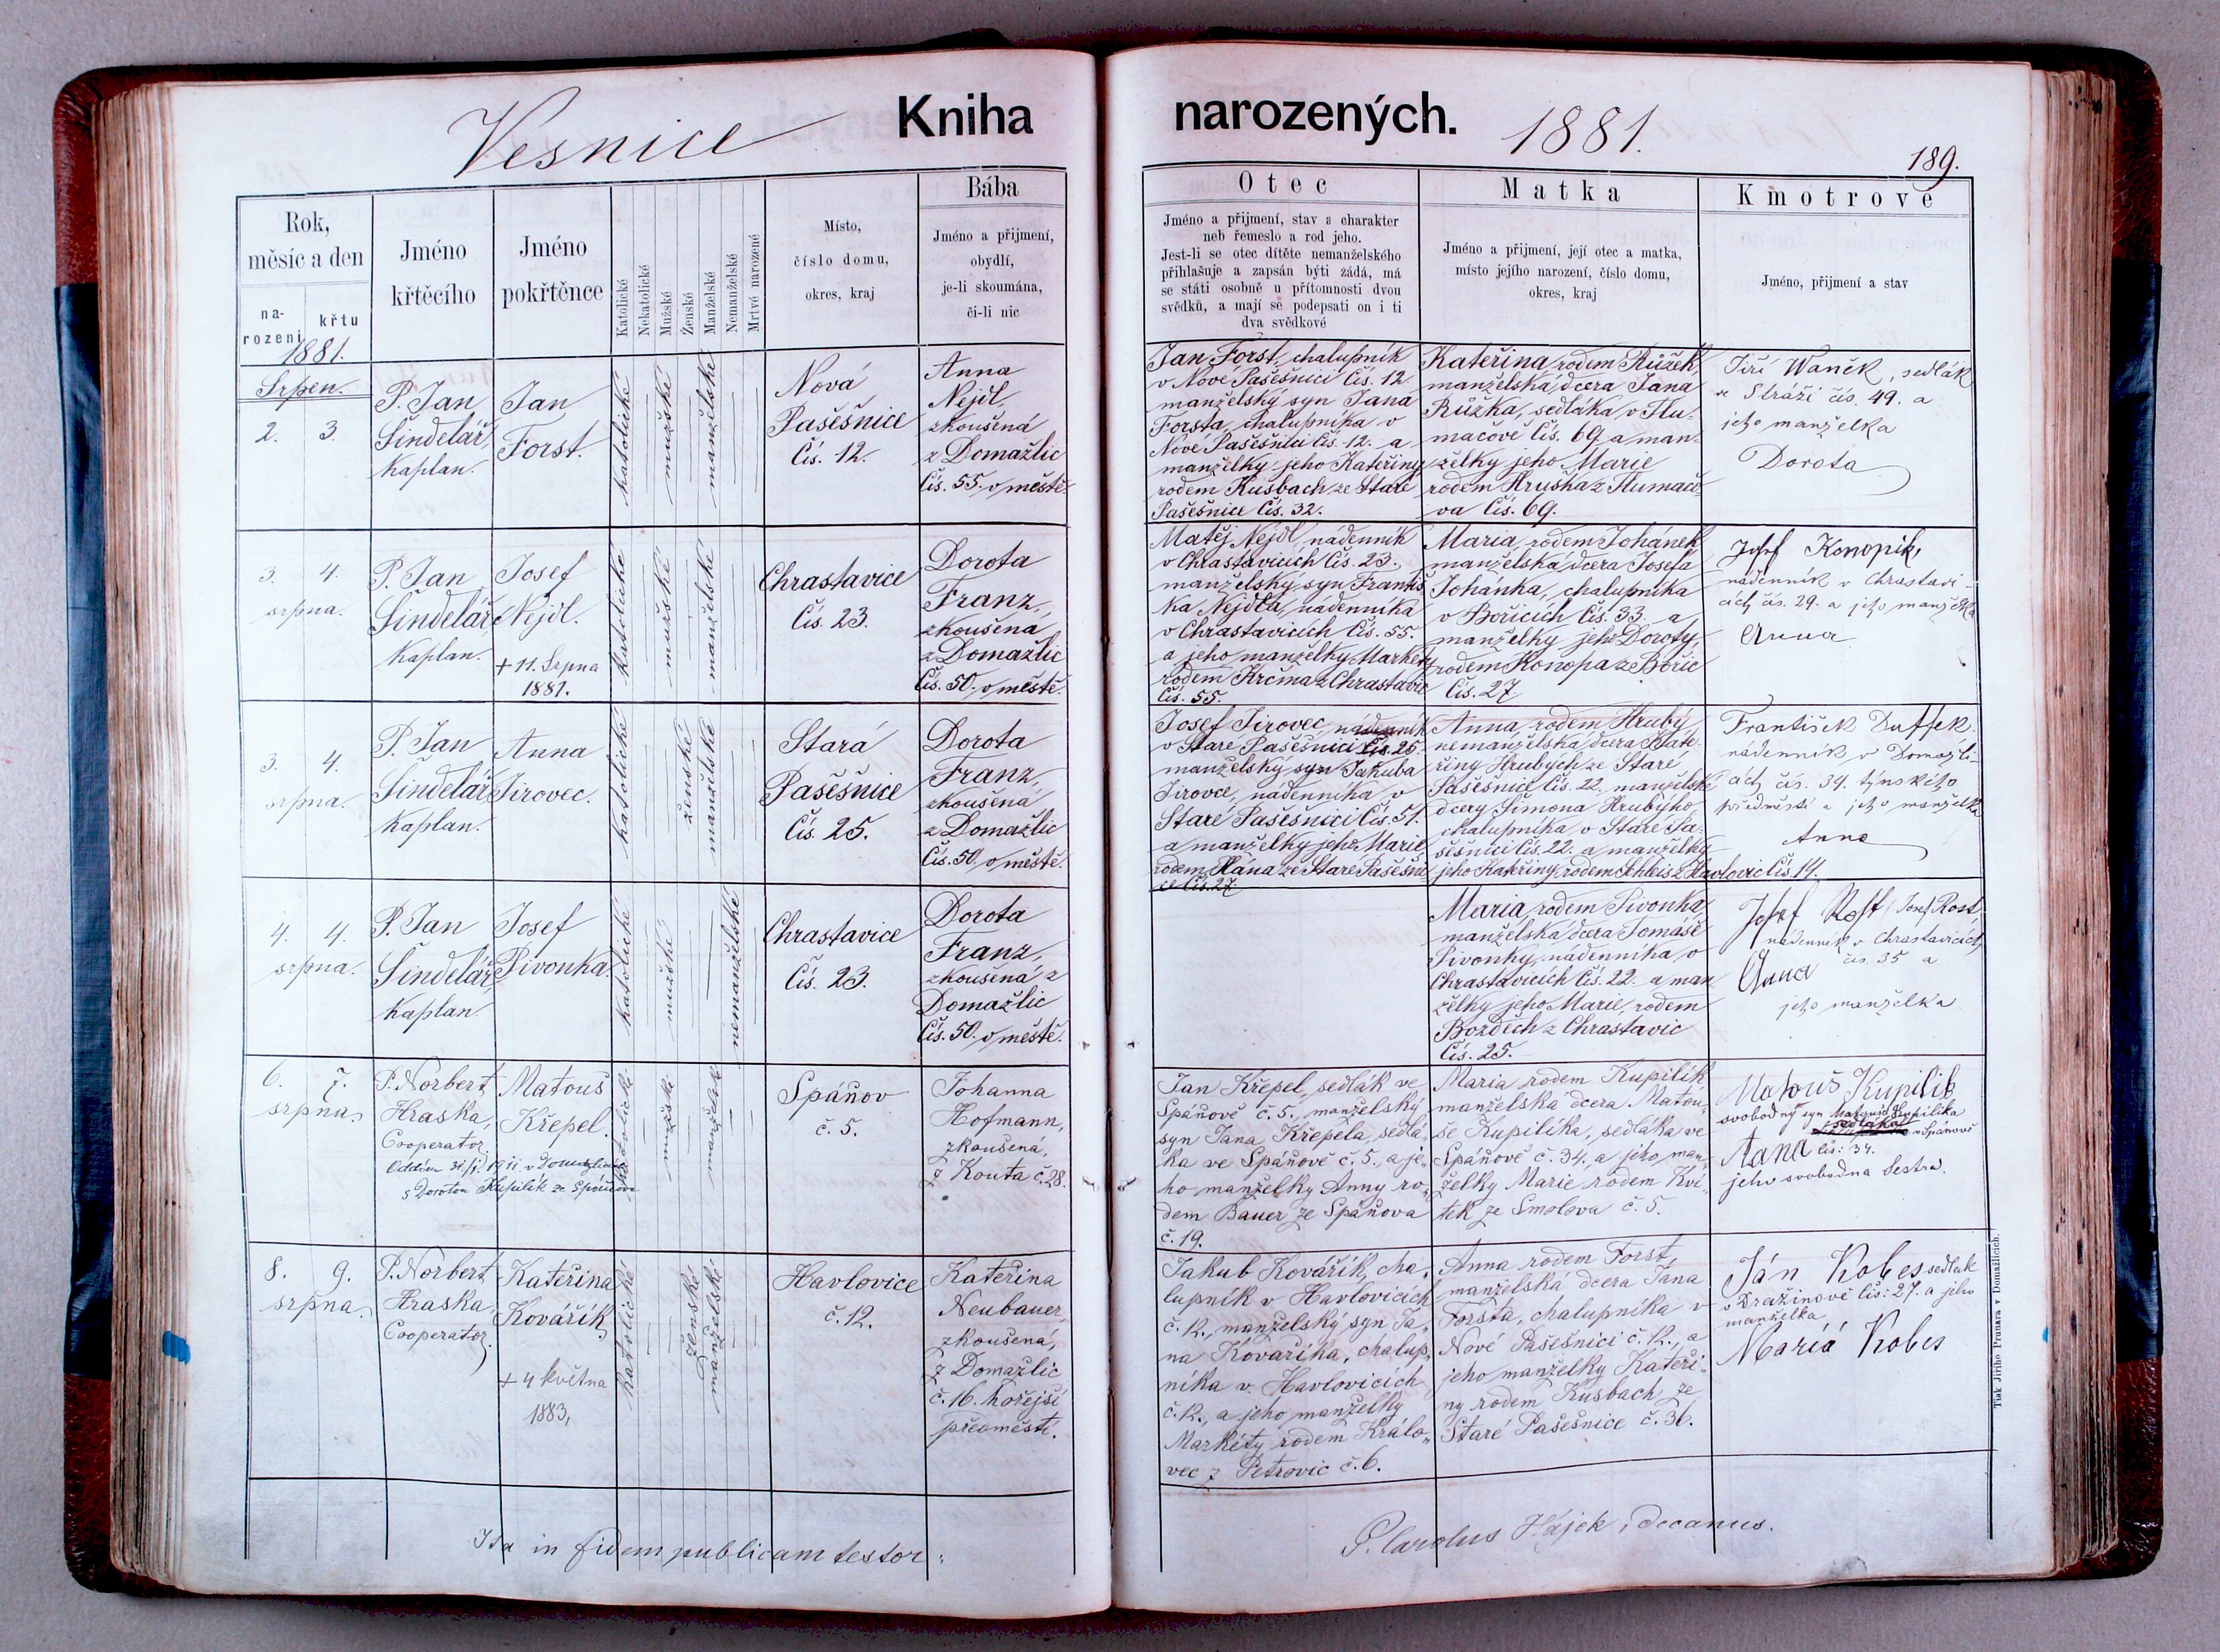 Vesnice
Kniha
narozených.
1881.
189.
Rok,
měsíc a den
na-
rození
křtu
1881.
Jméno
křtěcího
Jméno
pokřtěnce
Katolické
Nekatolické
Mužské
Ženské
Manželské
Nemanželské
Mrtvé narozené
Místo,
číslo domu,
okres, kraj
Bába
Jméno a přijmení,
obydlí,
je-li skoumána,
či-li nic
Otec
Jméno a přijmení, stav a charakter
neb řemeslo a rod jeho.
Jest-li se otec dítěte nemanželského
přihlašuje a zapsán býti žádá, má
se státi osobně u přítomnosti dvou
svědků, a mají se podepsati on i ti
dva svědkové
Matka
Jméno a přijmení, její otec a matka,
místo jejího narození, číslo domu,
okres, kraj
Kmotrové
Jméno, přijmení a stav
Srpen.
2. 3.
P. Jan
Šindelář,
Kaplan.
Jan
Forst.
katolické
mužské
manželské
Nová
Pašěšnice
Čís. 12.
Anna
Nejdl
zkoušená
z Domažlic
Čís. 55. v městě.
Jan Forst, chalupník
v Nové Pašěšnici Čís. 12.
manželský syn Jana
Forsta, chalupníka v
Nové Pašěšnici Čís. 12. a
manželky jeho Kateřiny
rodem Kusbach ze Staré
Pašěšnice Čís. 32.
Kateřina, rodem Růžek,
manželská dcera Jana
Růžka, sedláka v Tlu-
mačově Čís. 69. a man-
želky jeho Marie
rodem Hruška z Tlumačo-
va Čís. 69.
Jiří Waněk, sedlák
ze Stráži čís. 49. a
jeho manželka
Dorota
3. 4.
srpna.
P. Jan
Šindelář,
Kaplan.
Josef
Nejdl.
+ 11. Srpna
1881.
katolické
mužské
manželské
Chrastavice
Čís. 23.
Dorota
Franz,
zkoušená
z Domažlic
Čís. 50. v městě.
Matěj Nejdl, nádenník
v Chrastavicích Čís. 23.,
manželský syn Františ-
ka Nejdla, nádenníka
v Chrastavicích Čís. 55.
a jeho manželky Markety
rodem Krčma z Chrastavic
Čís. 55.
Maria, rodem Johánek
manželská dcera Josefa
Johánka, chalupníka
v Bořicích Čís. 33. a
manželky jeho Doroty,
rodem Konopa ze Bořic
Čís. 27.
Josef Konopik,
nádenník v Chrastavi-
cích čís. 29. a jeho manželka
Anna
3. 4.
srpna.
P. Jan
Šindelář
Kaplan.
Anna
Jirovec.
katolické
ženské
manželské
Stará
Pašěšnice
Čís. 25.
Dorota
Franz,
zkoušená
z Domažlic
Čís. 50. v městě.
Josef Jirovec, nádenník
v Staré Pašěšnici Čís. 25.
manželský syn Jakuba
Jirovce, nádenníka v
Staré Pašěšnici Čís. 51.
a manželky jeho Marie
rodem Hána ze Staré Pašěšni-
ce Čís. 27.
Anna, rodem Hrubý
nemanželská dcera Kate-
řiny Hrubých ze Staré
Pašěšnice Čís. 22. manželské
dcery Šimona Hrubýho
chalupníka v Staré Pa-
šěšnici Čís. 22. a manželky
jeho Kateřiny, rodem Schleis z Havlovic Čís 14.
František Duffek
nádenník v Domažli-
cích čís. 34. týnského
předměstí a jeho manželka
Anna
4. 4.
srpna.
P. Jan
Šindelář,
Kaplan.
Josef
Pivonka.
katolické
mužské
nemanželské
Chrastavice
Čís. 23.
Dorota
Franz,
zkoušená z
Domažlic
Čís. 50. v městě.
Maria, rodem Pivonka,
manželská dcera Tomáše
Pivonky, nádenníka v
Chrastavicích Čís. 22. a man-
želky jeho Marie, rodem
Bozděch z Chrastavic
Čís. 25.
Josef Rost, Josef Rost,
nádenník v Chrastavicích
čís 35 a
Anna
jeho manželka
6. 7.
srpna.
P. Norbert
Hraska,
Cooperator.
Matouš
Křepel.
Oddán 31./1. 1911 v Domažlicích
s Dorotou Kupilík ze Spáňova
katolické
mužské
manželské
Spáňov
č. 5.
Johanna
Hofmann,
zkoušená,
z Kouta č. 28.
Jan Křepel, sedlák ve
Spáňově č. 5., manželský
syn Jana Křepela, sedlá-
ka ve Spáňově č. 5., a je-
ho manželky Anny ro-
dem Bauer ze Spáňova
č. 19.
Maria rodem Kupilík,
manželská dcera Matou-
še Kupilíka, sedláka ve
Spáňově č. 34., a jeho man-
želky Marie rodem Kvi-
tek ze Smolova č. 5.
Matouš Kupilik
svobodný syn Matouše Kupilika
sedláka v Spánově
čís: 34.
Anna
jeho svobodna Sestra.
8. 9.
srpna.
P. Norbert
Hraska,
Cooperator.
Kateřina
Kovářík
+ 4 května
1883,
katolické
ženské
manželské
Havlovice
č. 12.
Kateřina
Neubauer,
zkoušená,
z Domažlic
č. 16. hořejší
předměstí.
Jakub Kovářík, cha-
lupník v Havlovicích
č. 12., manželský syn Ja-
na Kováříka, chalup-
níka v Havlovicích
č. 12., a jeho manželky
Markéty rodem Králo-
vec z Petrovic č. 6.
Anna rodem Forst,
manželská dcera Jana
Forsta, chalupníka v
Nové Pašešnici č. 12., a
jeho manželky Kateři-
ny rodem Kusbach ze
Staré Pašešnice č. 36.
Ján Kobes sedlak
v Dražinově čís: 27. a jeho
manželka
Mariá Kobes
Ita in fidem publicam testor:
P. Carolus Hájek, decanus.
Tisk Jiřího Prunara v Domažlicích.